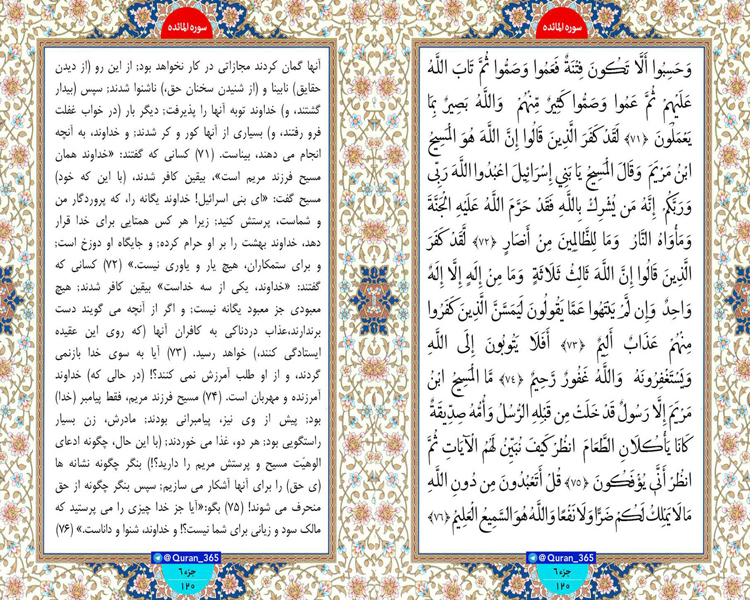 سوره المائده
وَحَسِبُوا أَلَّا تَكُونَ فِتْنَةٌ فَعَمُوا وَصَمُّوا ثُمَّ تَابَ اللَّهُ
عَلَيْهِمْ ثُمَّ عَمُوا وَصَمُّوا كَثِيرٌ مِنْهُمْ وَاللَّهُ بَصِيرٌ بِمَا
يَعْمَلُونَ ﴿٧١﴾ لَقَدْ كَفَرَ الَّذِينَ قَالُوا إِنَّ اللَّهَ هُوَ الْمَسِيحُ
ابْنُ مَرْيَمَ وَقَالَ الْمَسِيحُ يَا بَنِي إِسْرَائِيلَ اعْبُدُوا اللَّهَ رَبِّي
وَرَبَّكُمْ إِنَّهُ مَنْ يُشْرِكْ بِاللَّهِ فَقَدْ حَرَّمَ اللَّهُ عَلَيْهِ الْجَنَّةَ
وَمَأْوَاهُ النَّارُ وَمَا لِلظَّالِمِينَ مِنْ أَنْصَارٍ ﴿٧٢﴾ لَقَدْ كَفَرَ
الَّذِينَ قَالُوا إِنَّ اللَّهَ ثَالِثُ ثَلَاثَةٍ وَمَا مِنْ إِلَهٍ إِلَّا إِلَهٌ
وَاحِدٌ وَإِنْ لَمْ يَنْتَهُوا عَمَّا يَقُولُونَ لَيَمَسَّنَّ الَّذِينَ كَفَرُوا
مِنْهُمْ عَذَابٌ أَلِيمٌ ﴿٧٣﴾ أَفَلَا يَتُوبُونَ إِلَى اللَّهِ
وَيَسْتَغْفِرُونَهُ وَاللَّهُ غَفُورٌ رَحِيمٌ ﴿٧٤﴾ مَا الْمَسِيحُ ابْنُ
مَرْيَمَ إِلَّا رَسُولٌ قَدْ خَلَتْ مِنْ قَبْلِهِ الرُّسُلُ وَأُمُّهُ صِدِّيقَةٌ
كَانَا يَأْكُلَانِ الطَّعَامَ انْظُرْ كَيْفَ نُبَيِّنُ لَهُمُ الْآيَاتِ ثُمَّ
انْظُرْ أَنَّى يُؤْفَكُونَ ﴿٧٥﴾ قُلْ أَتَعْبُدُونَ مِنْ دُونِ اللَّهِ
مَا لَا يَمْلِكُ لَكُمْ ضَرًّا وَلَا نَفْعًا وَاللَّهُ هُوَ السَّمِيعُ الْعَلِيمُ ﴿٧٦﴾
@Quran_365
جزء ۶
۱۲۰
سوره المائده
آنها گمان کردند مجازاتی در کار نخواهد بود؛ از این رو (از دیدن
حقایق) نابینا و (از شنیدن سخنان حق،) ناشنوا شدند؛ سپس (بیدار
گشتند، و) خداوند توبه آنها را پذیرفت؛ دیگر بار (در خواب غفلت
فرو رفتند، و) بسیاری از آنها کور و کر شدند؛ و خداوند، به آنچه
انجام می دهند، بیناست. (۷۱) کسانی که گفتند: «خداوند همان
مسیح فرزند مریم است»، بیقین کافر شدند، (با این که خود)
مسیح گفت: «ای بنی اسرائیل! خداوند یگانه را، که پروردگار من
و شماست، پرستش کنید; زیرا هر کس همتایی برای خدا قرار
دهد، خداوند بهشت را بر او حرام کرده; و جایگاه او دوزخ است;
و برای ستمکاران، هیچ یار و یاوری نیست.» (۷۲) کسانی که
گفتند: «خداوند، یکی از سه خداست» بیقین کافر شدند; هیچ
معبودی جز معبود یگانه نیست; و اگر از آنچه می گویند دست
برندارند،عذاب دردناکی به کافران آنها (که روی این عقیده
ایستادگی کنند،) خواهد رسید. (۷۳) آیا به سوی خدا بازنمی
گردند، و از او طلب آمرزش نمی کنند؟! (در حالی که) خداوند
آمرزنده و مهربان است. (۷۴) مسیح فرزند مریم، فقط پیامبر (خدا)
بود; پیش از وی نیز، پیامبرانی بودند; مادرش، زن بسیار
راستگویی بود; هر دو، غذا می خوردند; (با این حال، چگونه ادعای
الوهیّت مسیح و پرستش مریم را دارید؟!) بنگر چگونه نشانه ها
(ی حق) را برای آنها آشکار می سازیم; سپس بنگر چگونه از حق
منحرف می شوند! (۷۵) بگو:«آیا جز خدا چیزی را می پرستید که
مالک سود و زیانی برای شما نیست؟! و خداوند، شنوا و داناست.» (۷۶)
@Quran_365
جزء ۶
۱۲۰